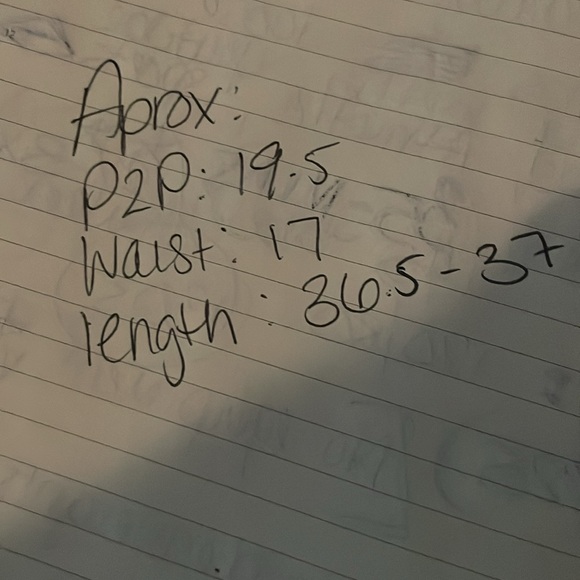 Aprox:
P2P: 19.5
Waist: 17
length: 36.5-37